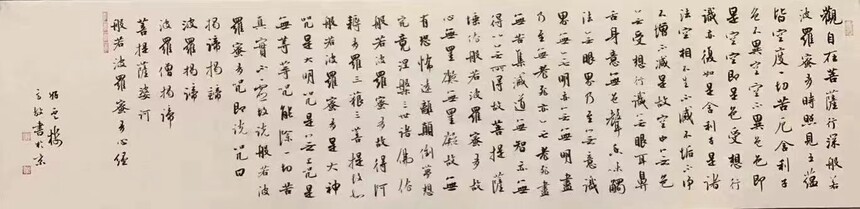 觀自在菩薩行深般若
波羅蜜多時照見五蘊
皆空度一切苦厄舍利子
色不異空空不異色色即
是空空即是色受想行
識亦復如是舍利子是諸
法空相不生不滅不垢不淨
不增不減是故空中無色
無受想行識無眼耳鼻
舌身意無色聲香味觸
法無眼界乃至無意識
界無無明亦無無明盡
乃至無老死亦無老死盡
無苦集滅道無智亦無
得以無所得故菩提薩
埵依般若波羅蜜多故
心無罣礙無罣礙故無
有恐怖遠離顛倒夢想
究竟涅槃三世諸佛依
般若波羅蜜多故得阿
耨多羅三藐三菩提故知
般若波羅蜜多是大神
咒是大明咒是無上咒是
無等等咒能除一切苦
真實不虛故說般若波
羅蜜多咒即說咒曰
揭諦揭諦
波羅揭諦
波羅僧揭諦
菩提薩婆訶
般若波羅蜜多心經
書於京